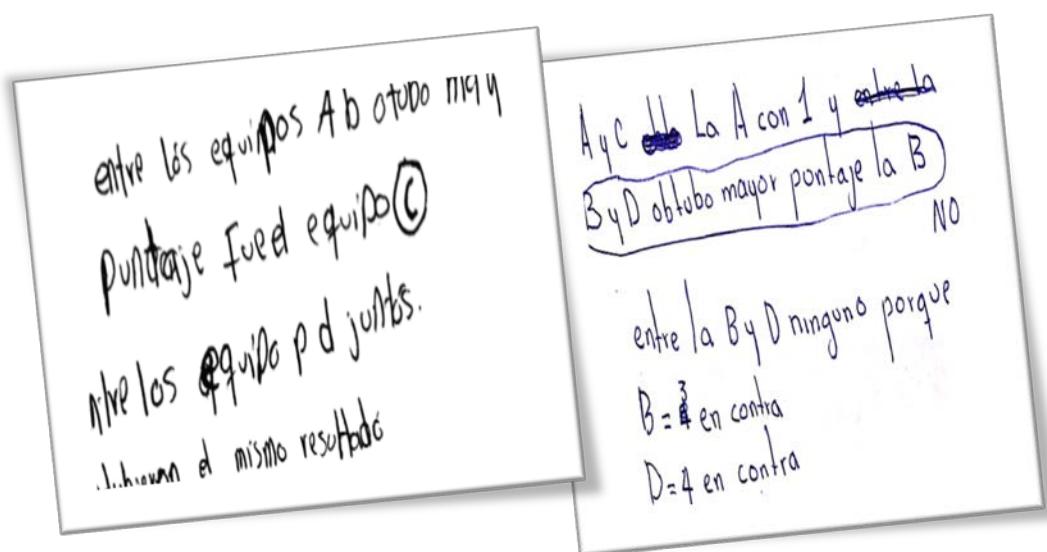 entre los equipos A b otubo
puntaje Fue el equipo C
los equipo p d juntos.
el mismo resultado
A y C La A con 1 y entre la
B y D obtubo mayor pontaje la B
NO
entre la B y D ninguno porque
B = 3 en contra
D = 4 en contra